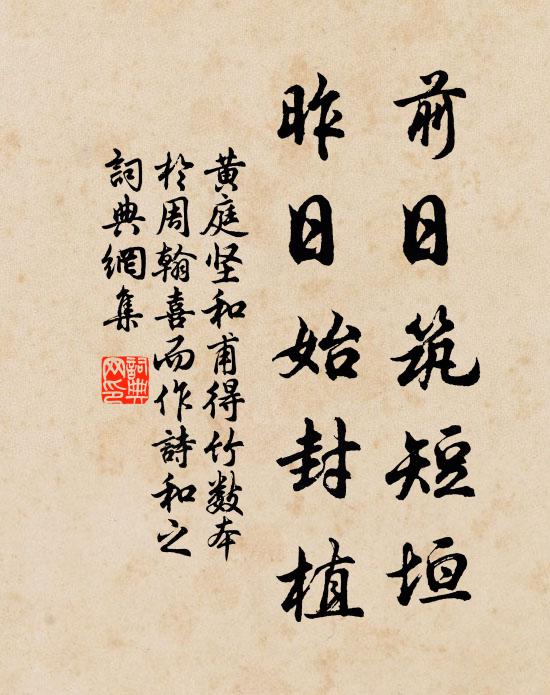 前日筑短垣
昨日始封植
黄庭坚和甫得竹数本
於周翰喜而作詩和之
詞典網集
詞典网印